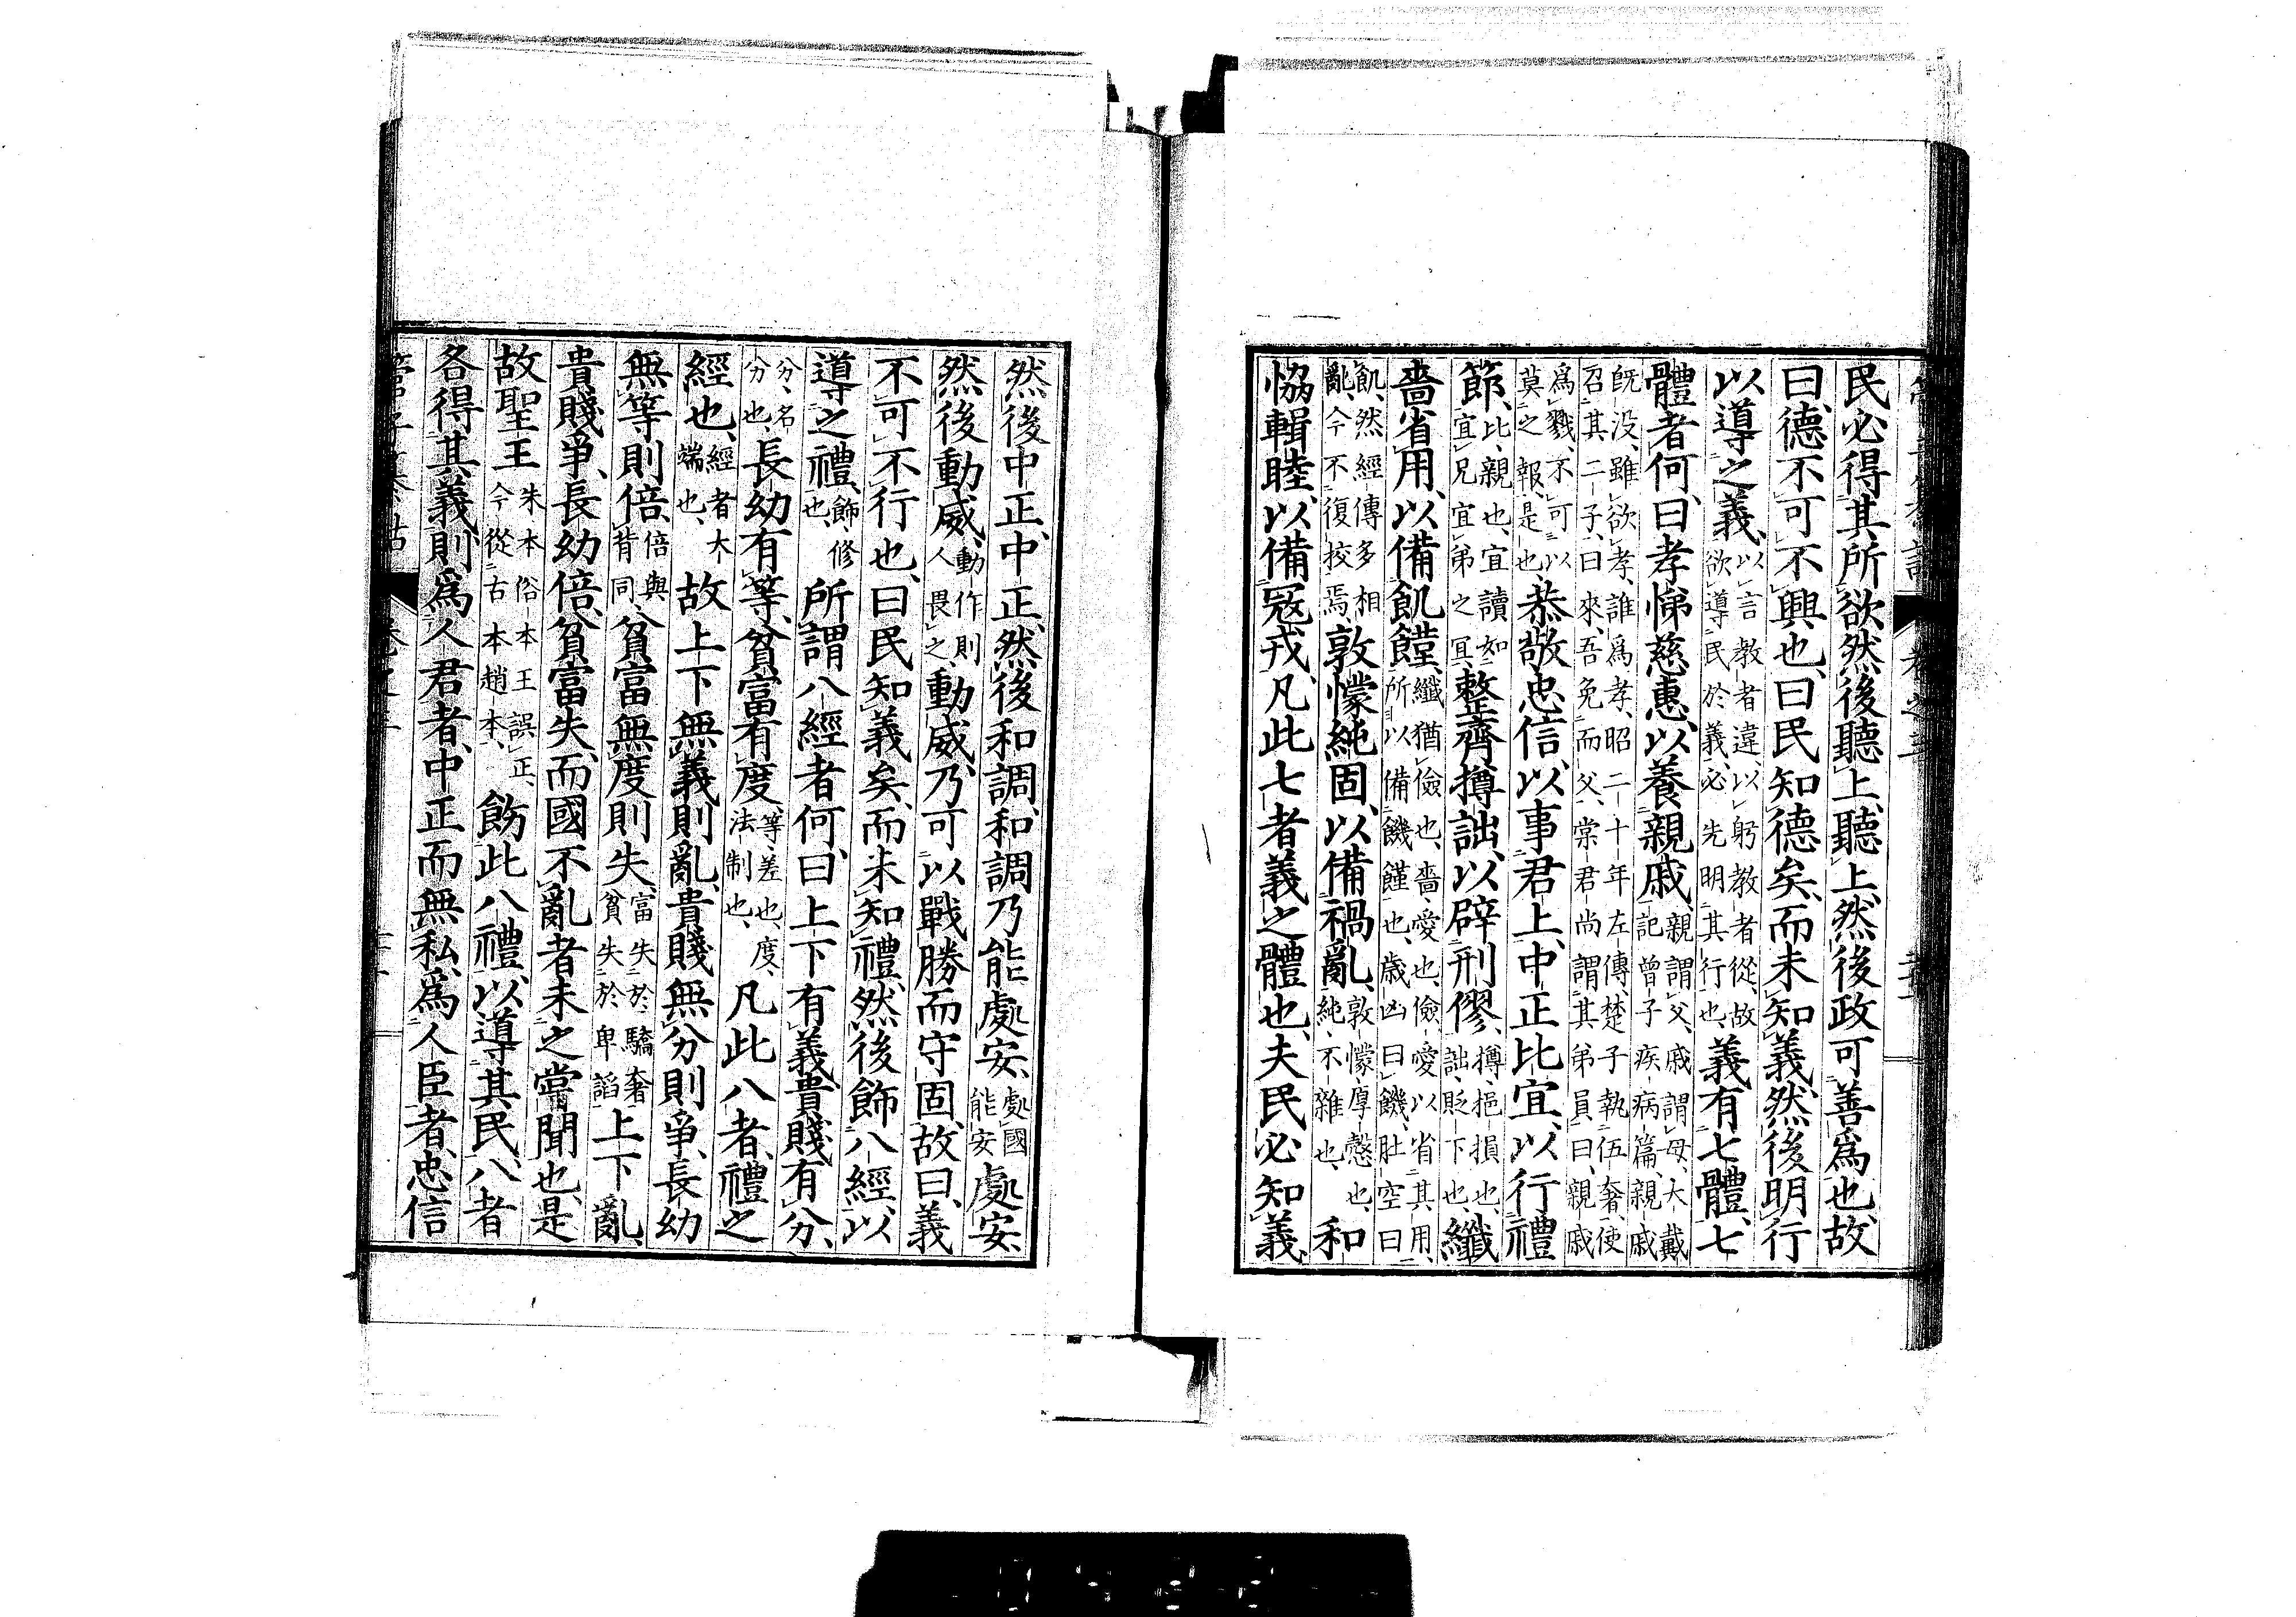 民必得其所欲、然後聽上、聽上、然後政可善爲也、故
曰、德不可不興也、曰、民知德矣、而未知義、然後明行
以導之義、以言教者違、以躬教者從、故欲導民於義、必先明其行也、義有七體、七
體者何、曰、孝悌慈惠、以養親戚、親謂父、戚謂母、大戴記曾子疾病篇、親戚
既没、雖欲孝、誰爲孝、昭二十年左傳、楚子執伍奢、使召其二子、曰、來、吾免而父、棠君尚謂其弟員曰、親戚
爲戮、不可以莫之報、是也、恭敬忠信、以事君上、中正比宜、以行禮
節、比、親也、宜讀如宜兄宜弟之冝、整齊撙詘、以辟刑僇、撙、挹損也、詘、貶下也、纖
嗇省用、以備飢饉、纖猶儉也、嗇、愛也、儉愛以省其用、所以備饑饉也、歳凶曰饑、肚空曰
飢、然經傳多相亂、今不復挍焉、敦懞純固、以備禍亂、敦懞、厚慤也、純、不雜也、和
恊輯睦、以備寇戎、凡此七者義之體也、夫民必知義、
然後中正、中正、然後和調、和調乃能處安、處國能安處安、
然後動威、動作則人畏之、動威、乃可以戰勝而守固、故曰、義
不可不行也、曰民知義矣、而未知禮、然後飾八經、以
導之禮、飾、修也、所謂八經者何、曰、上下有義、貴賤有分、
分、名分也、長幼有等、貧富有度、等、差也、度、法制也、凡此八者、禮之
經也、經者大端也、故上下無義則亂、貴賤無分則爭、長幼
無等則倍、倍與背同、貧富無度則失、富失失於驕奢貧失失於卑諂上下亂、
貴賤爭、長幼倍、貧富失、而國不亂者、未之嘗聞也、是
故聖王朱本俗本王誤正、今從古本趙本、飭此八禮、以導其民、八者
各得其義、則爲人君者、中正而無私、爲人臣者、忠信